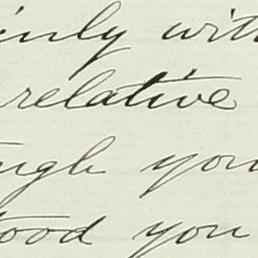 inly with
relative
ugh you
tood you